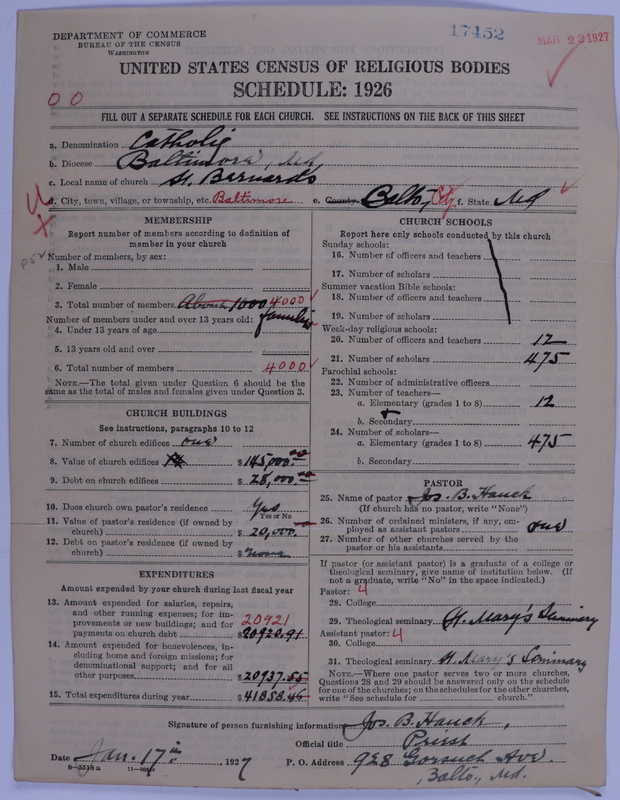 17452
MAR 23 1927
DEPARTMENT OF COMMERCE
BUREAU OF THE CENSUS
WASHINGTON
UNITED STATES CENSUS OF RELIGIOUS BODIES
SCHEDULE: 1926
0 0
FILL OUT A SEPARATE SCHEDULE FOR EACH CHURCH. SEE INSTRUCTIONS ON THE BACK OF THIS SHEET
a. Denomination Catholic
b. Diocese Baltimore, Md.
c. Local name of church St. Bernards
d. City, town, village, or township, etc. Baltimore e. County Balto, City f. State Md
MEMBERSHIP
Report number of members according to definition of
member in your church
Number of members, by sex:
1. Male
2. Female
3. Total number of members About 1000 4000
families
Number of members under and over 13 years old:
4. Under 13 years of age
5. 13 years old and over
6. Total number of members 4000
NOTE.—The total given under Question 6 should be the
same as the total of males and females given under Question 3.
CHURCH BUILDINGS
See instructions, paragraphs 10 to 12
7. Number of church edifices one
8. Value of church edifices $145,000.00
9. Debt on church edifices $28,000.00
10. Does church own pastor's residence Yes
Yes or No
11. Value of pastor's residence (if owned by
church) $20,000.
12. Debt on pastor's residence (if owned by
church) $none
EXPENDITURES
Amount expended by your church during last fiscal year
13. Amount expended for salaries, repairs,
and other running expenses; for im-
provements or new buildings; and for
payments on church debt 20921 $20920.91
14. Amount expended for benevolences, in-
cluding home and foreign missions; for
denominational support; and for all
other purposes $20937.55
15. Total expenditures during year $41858.46
CHURCH SCHOOLS
Report here only schools conducted by this church
Sunday schools:
16. Number of officers and teachers
17. Number of scholars
Summer vacation Bible schools:
18. Number of officers and teachers
19. Number of scholars
Week-day religious schools:
20. Number of officers and teachers 12
21. Number of scholars 475
Parochial schools:
22. Number of administrative officers
23. Number of teachers—
a. Elementary (grades 1 to 8) 12
b. Secondary
24. Number of scholars—
a. Elementary (grades 1 to 8) 475
b. Secondary
PASTOR
25. Name of pastor Jos. B. Hauck
(If church has no pastor, write "None")
26. Number of ordained ministers, if any, em-
ployed as assistant pastors one
27. Number of other churches served by the
pastor or his assistants
If pastor (or assistant pastor) is a graduate of a college or
theological seminary, give name of institution below. (If
not a graduate, write "No" in the space indicated.)
Pastor: 4
28. College
29. Theological seminary St. Mary's Seminary
Assistant pastor: 4
30. College
31. Theological seminary St. Mary's Seminary
NOTE.—Where one pastor serves two or more churches,
Questions 28 and 29 should be answered only on the schedule
for one of the churches; on the schedules for the other churches,
write "See schedule for church."
Signature of person furnishing information Jos. B. Hauck,
Official title Priest
Date Jan. 17th, 1927 P. O. Address 928 Gorsuch Ave.
Balto., Md.